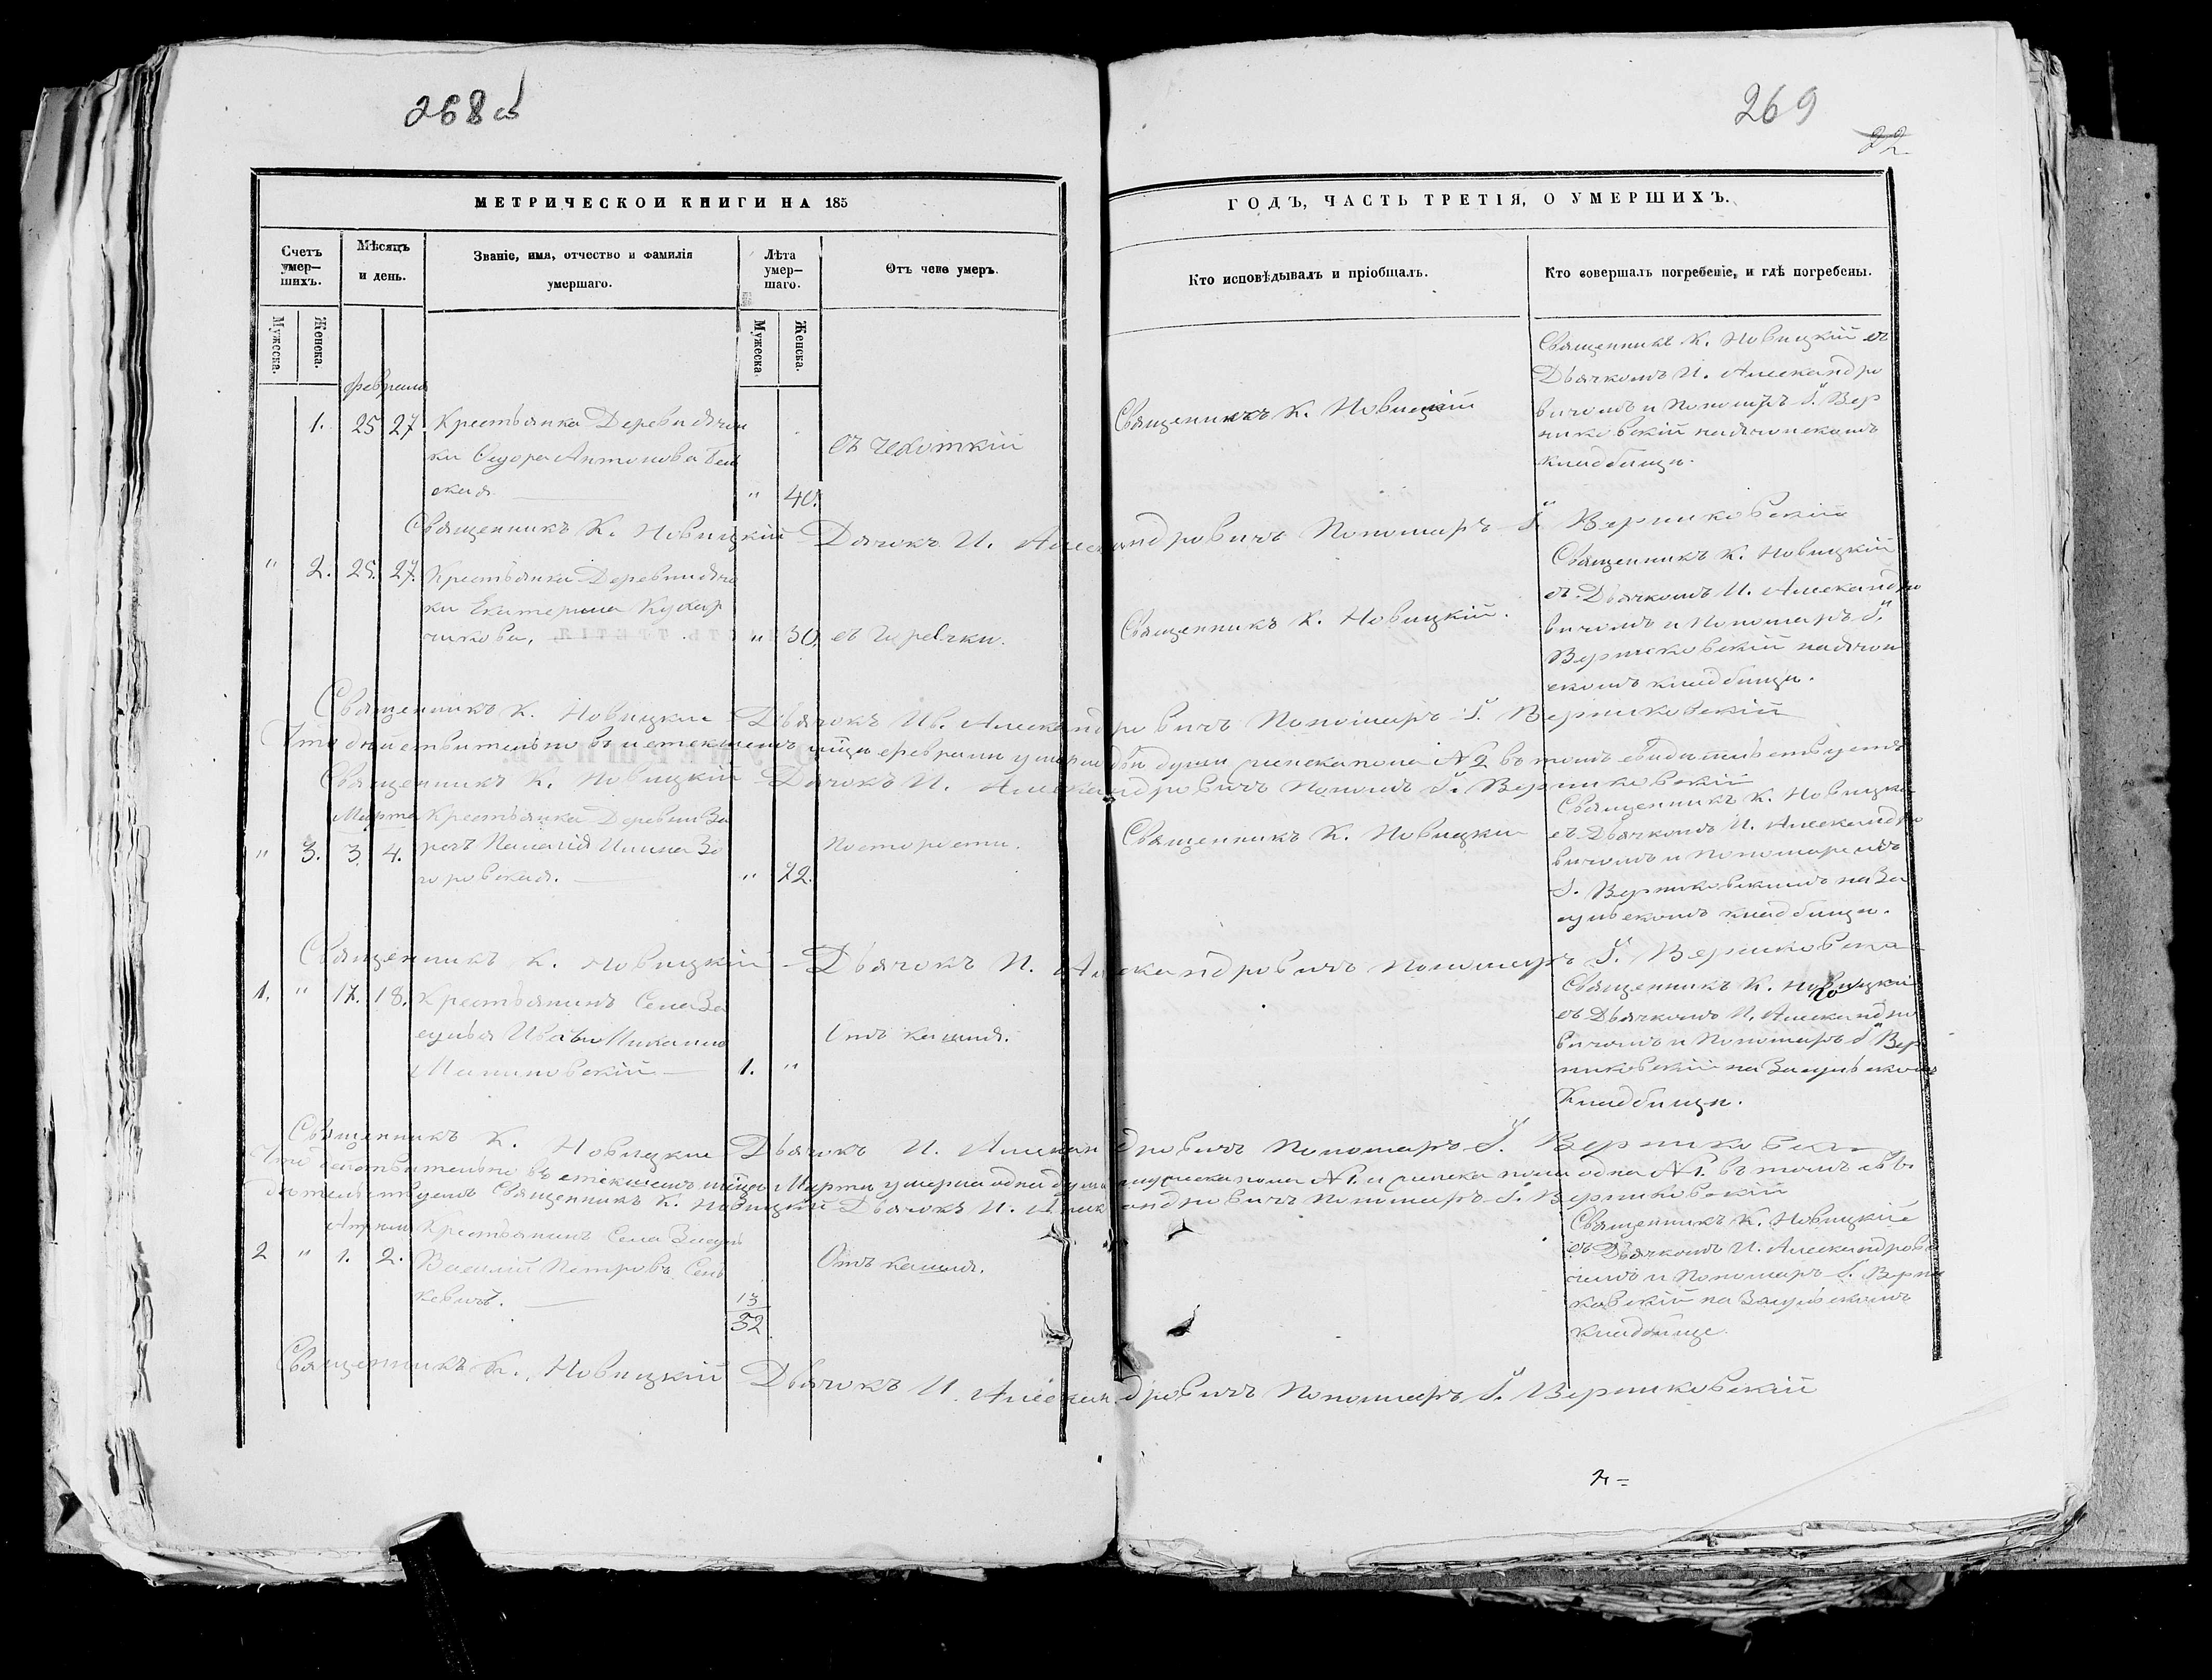 268 об
269
22
МЕТРИЧЕСКОЙ КНИГИ НА 185
ГОДЪ, ЧАСТЬ ТРЕТІЯ, О УМЕРШИХЪ.
Счетъ умер-
шихъ.
Мѣсяцъ
и день.
Званіе, имя, отчество и фамилія
умершаго.
Лѣта
умер-
шаго.
Отъ чего умеръ.
Кто исповѣдывалъ и пріобщалъ.
Кто совершалъ погребеніе, и гдѣ погребены.
Мужеска.
Женска.
Мужеска.
Женска.
Февраля
1. 25 27 Крестьянка Деревни
ки Антонова
ская
" 40.
съ чехоткій
Священникъ К. Новицкій
Священникъ К. Новицкій съ
Дьячкомъ И. Александро
вичомъ и Пономаръ І. Вер
никовскій на
кладбищи.
Священникъ К. Новицкій Дячокъ И. Александровичъ Пономаръ І. Верниковскій
" 2. 25. 27. Крестьянка Деревни
ки Екатерина Кухар
чикова,
" 30. съ Горячки.
Священникъ К. Новицкій.
Священникъ К. Новицкій
съ Дьячкомъ И. Александро
вичомъ и Пономаръ І.
Верниковскій на
скомъ кладбищи.
Священникъ К. Новицкій Дьячокъ Ив. Александровичъ Пономаръ І. Верниковскій
Что дѣйствительно въ истекшемъ мцѣ феврали умерли двѣ души женска пола №2 въ томъ свидѣтельствуемъ
Священникъ К. Новицкій Дячокъ И. Александровичъ Поном І. Верниковскій
Марта Крестьянка Деревни За
" 3. 3. 4. речъ Пелагія Ильина За
горовская.
" 72.
По старости.
Священникъ К. Новицкій
Священникъ К. Новицкій
съ Дьячкомъ И. Александро
вичомъ и Пономаремъ
І. Верниковскимъ на За
сульскомъ кладбищи.
Священникъ К. Новицкій Дьячокъ И. Александровичъ Пономаръ І. Верниковскій
1. " 17. 18. Крестьянинъ Села За
сулья Иванъ
1. "
Отъ кашля.
Священникъ К. Новицкій
съ Дьячкомъ И. Александро
вичомъ и Пономаръ І. Вер
никовскій на Засульскомъ
Кладбищи.
Священникъ К. Новицкій Дьячокъ И. Александровичъ Пономаръ І. Верниковскій
Что дѣйствительно въ истекшемъ мцѣ Марти умерла одна душа мужеска пола №1. и женска пола одна №1. въ томъ сви
дѣтельствуемъ Священникъ К. Новицкій Дьячокъ И. Александровичъ Пономаръ І. Верниковскій
Апреля Крестьянинъ Села Засуля
2 " 1. 2. Василій Петровъ Сень
кевичъ.
13
52
Отъ кашля.
Священникъ К. Новицкій
съ Дьячкомъ И. Александрови
чомъ и Пономаръ І. Верни
ковскій на Засульскомъ
кладбище.
Священникъ К. Новицкій Дьячокъ И. Александровичъ Пономаръ І. Верниковскій